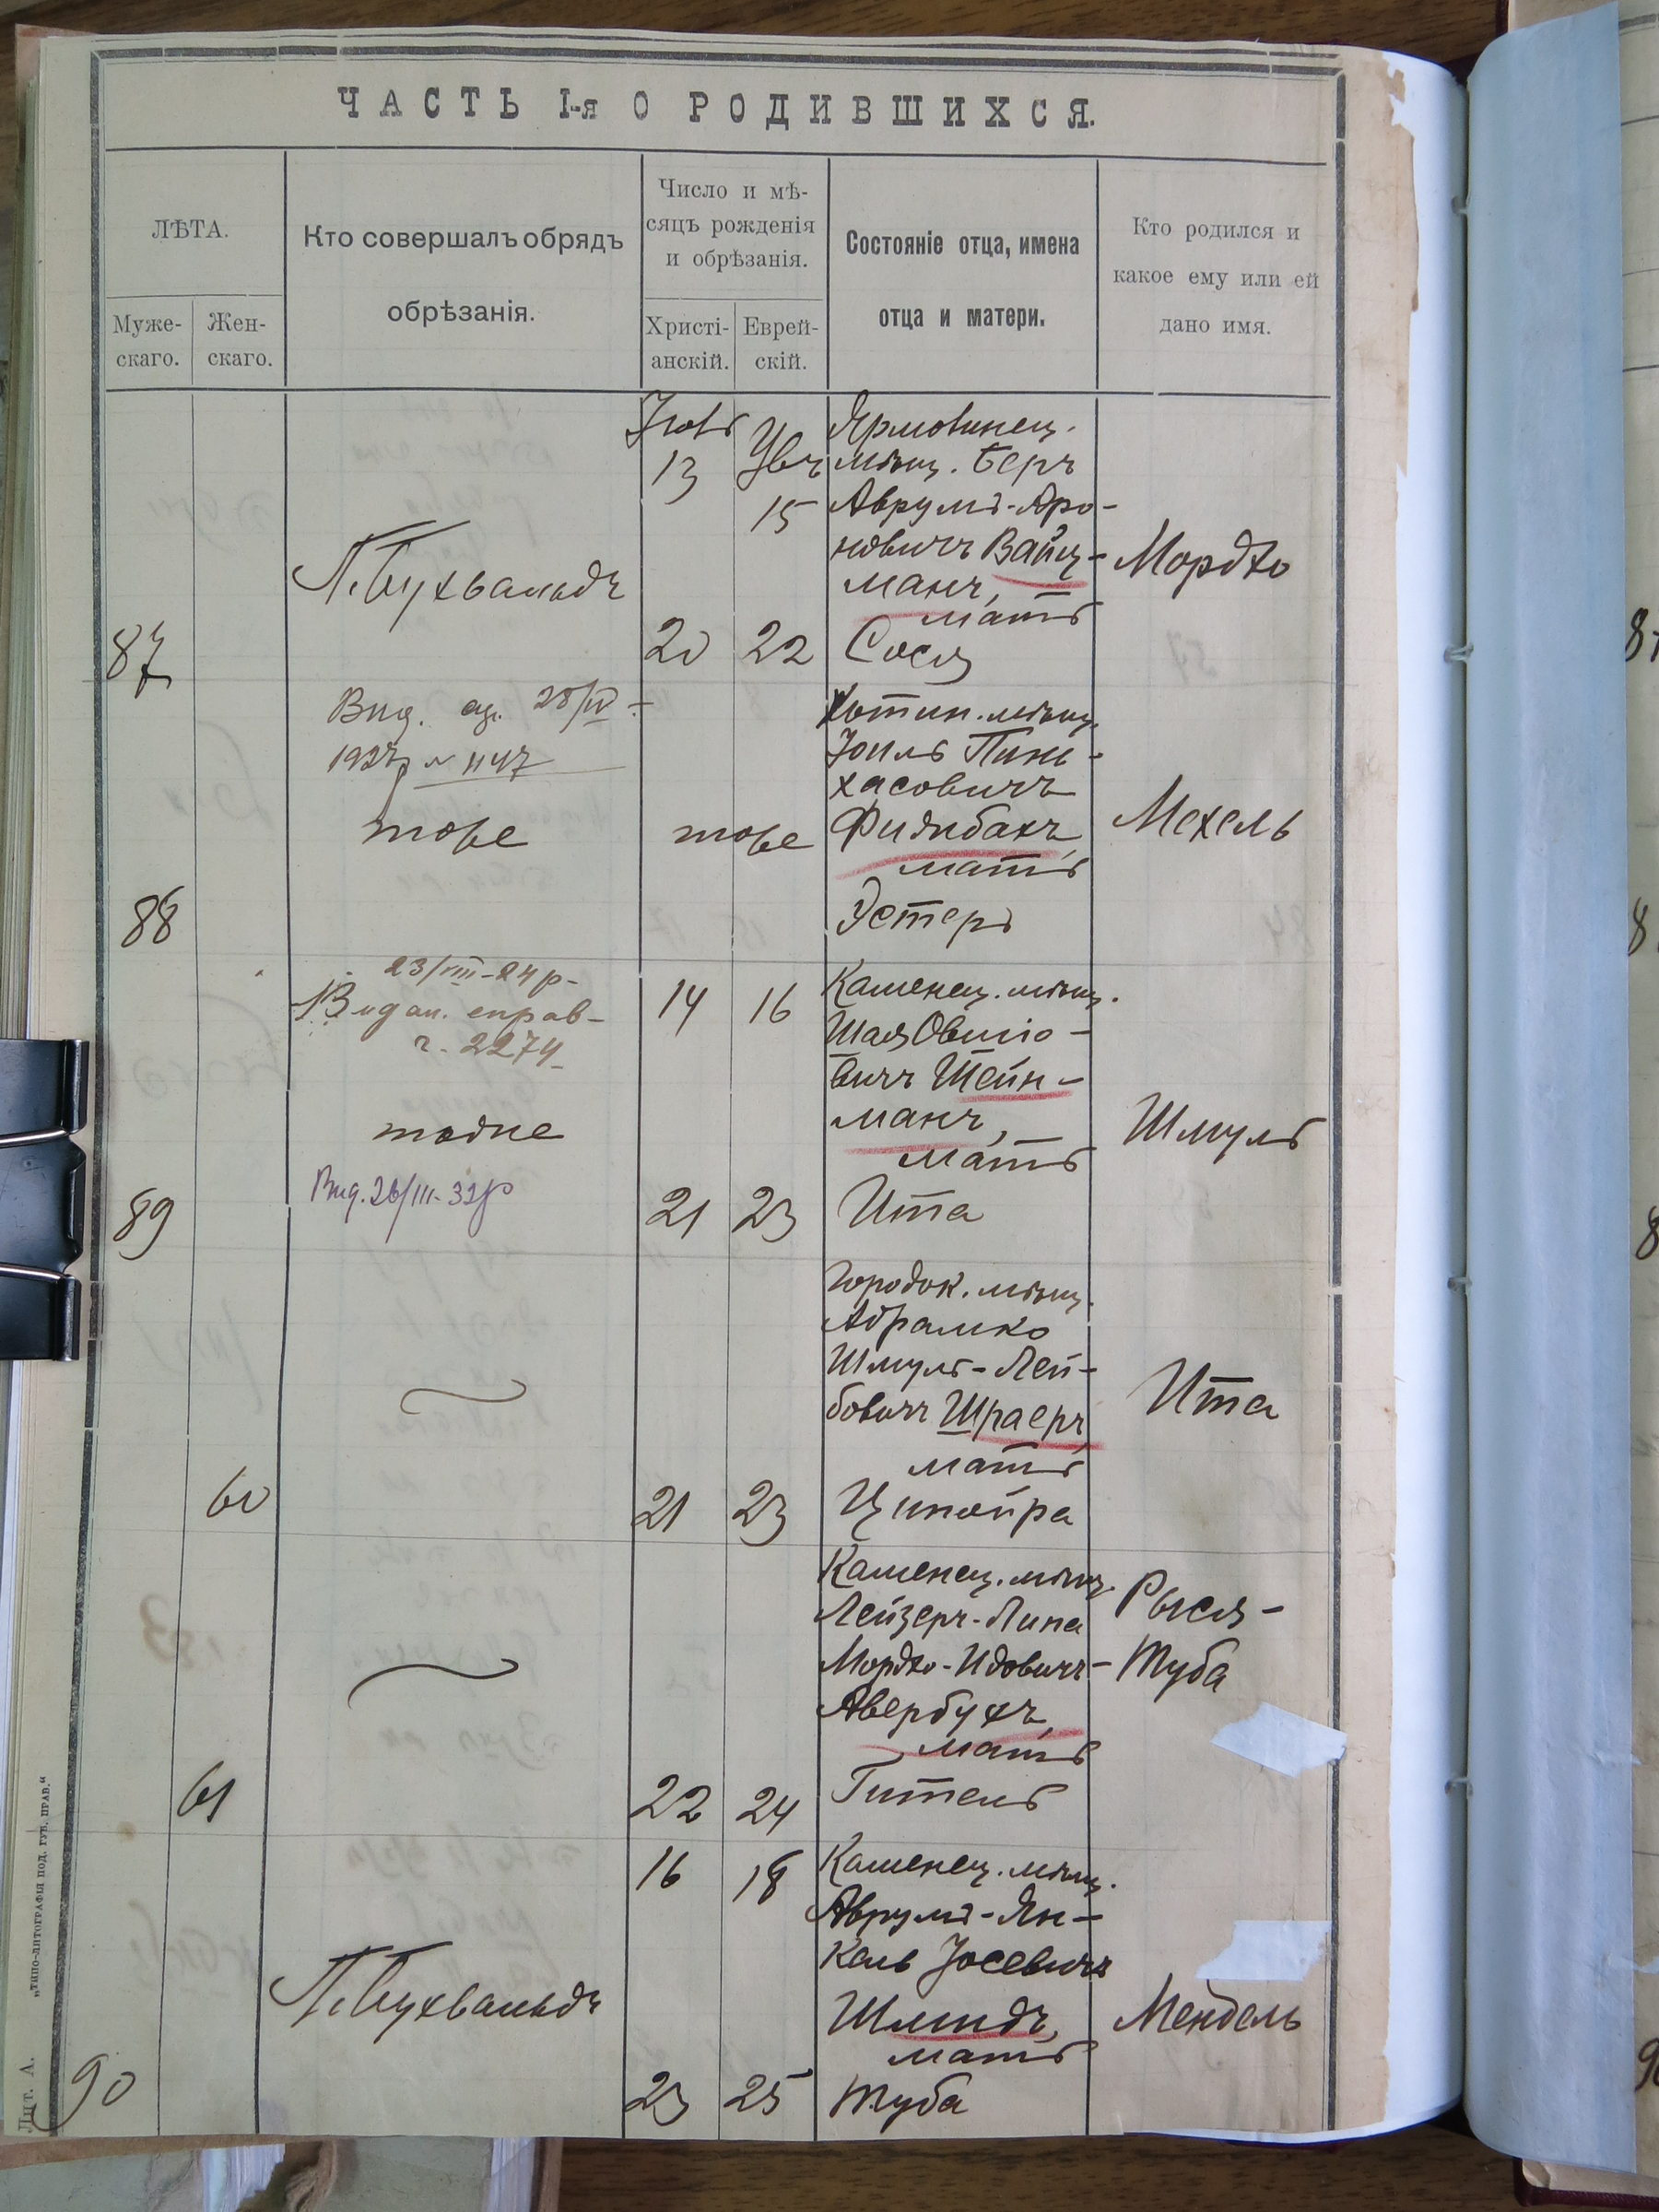 ЧАСТЬ I-я О РОДИВШИХСЯ.
ЛѢТА.
Муже-
скаго.
Жен-
скаго.
Кто совершалъ обрядъ
обрѣзанія.
Число и мѣ-
сяцъ рожденія
и обрѣзанія.
Христі-
анскій.
Еврей-
скій.
Состояніе отца, имена
отца и матери.
Кто родился и
какое ему или ей
дано имя.
87
П. Бухвальдъ
13
15
20
22
Ярмолинец.
мѣщ. Беръ
Аврумъ-Аро-
новичъ Вайц-
манъ,
мать
Сося
Мордко
88
Вид. 28/IV
1927р
тоже
тоже
Хотин. мѣщ.
Іоиль Пинь-
хасовичъ
мать
Эстеръ
Мехель
89
23/VIII-24р-
Видан. справ-
ч. 2274
тоже
Вид. 26/III-32р
14
16
21
23
Каменец. мѣщ.
Шая Овшіо-
вичъ Штейн-
манъ,
мать
Ита
Шмуль
60
21
23
Городок. мѣщ.
Абрамко
Шмуль-Лей-
бовичъ Шраеръ,
мать
Ципойра
Ита
61
22
24
Каменец. мѣщ.
Лейзеръ-Липа
Мордко-Идовичъ
Авербухъ,
мать
Гитель
Рыся-
Туба
90
П. Бухвальдъ
16
18
23
25
Каменец. мѣщ.
Аврумъ-Ян-
кель Іосевичъ
Шмидъ,
мать
Туба
Мендель
Лит. А.
„ТИПО-ЛИТОГРАФІЯ ПОД. ГУБ. ПРАВ.“